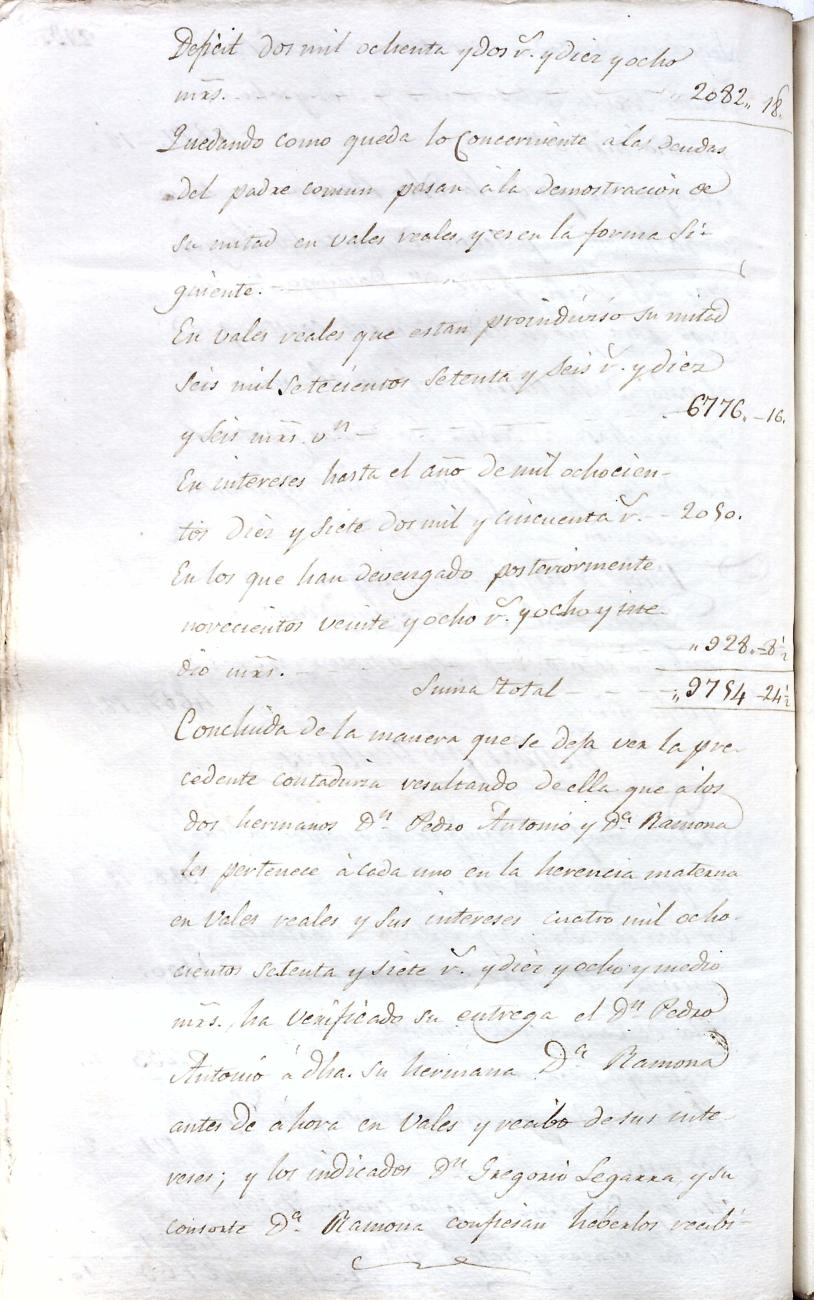 Deficit dos mil ochenta y dos r.s y diez y ocho
mrs. 2082,, 18.
Quedando como queda lo Concerniente a las deudas
del padre comun pasan à la demostracion de
su mitad en vales reales, y es en la forma Si-
guiente.
En vales reales que estan proindiviso su mitad
Seis mil Setecientos Setenta y Seis r.s y diez
y Seis mrs. v.n 6776,, 16.
En intereses hasta el año de mil ochocien-
tos diez y Siete dos mil y cincuenta r.s 2050.
En los que han devengado posteriormente
novecientos veinte y ocho r.s y ocho y me-
dio mrs. ,, 928,, 8 1/2
Suma total ,, 9754 - 24 1/2
Concluida de la manera que se deja ver la pre-
cedente contaduria resultando de ella que a los
dos hermanos D.n Pedro Antonio y D.a Ramona
les pertenece à cada uno en la herencia materna
en Vales reales y Sus intereses cuatro mil ocho-
cientos setenta y siete r.s y diez y ocho y medio
mrs., ha verificado su entrega el D.n Pedro
Antonio à dha. su hermana D.a Ramona
antes de ahora en Vales y recibo de sus inte-
reses; y los indicados D.n Gregorio Legarra, y su
consorte D.a Ramona confiesan heberlos recibi-